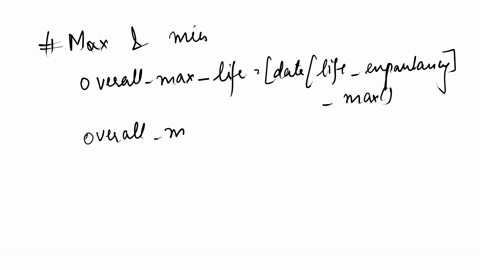 # Max & min
overall_max_life = [date[life_expantancy]
_ max()
overall_m